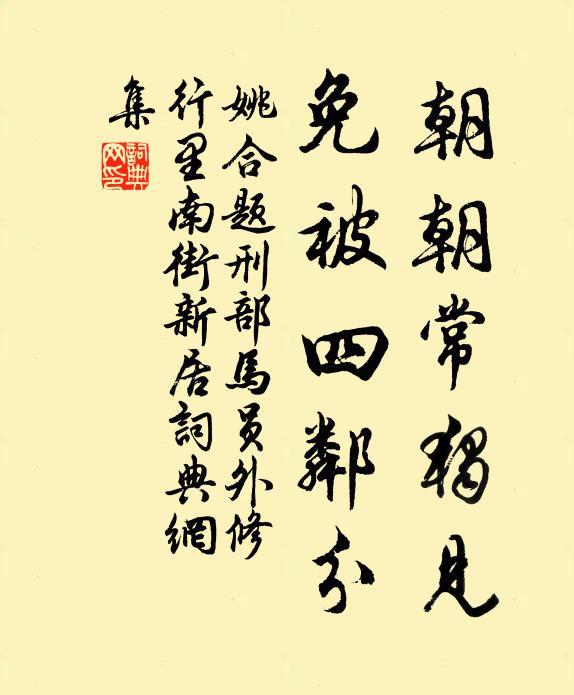 朝朝常獨見
免被四鄰分
姚合題刑部馬員外修
行里南街新居詞典網
集
詞典網印